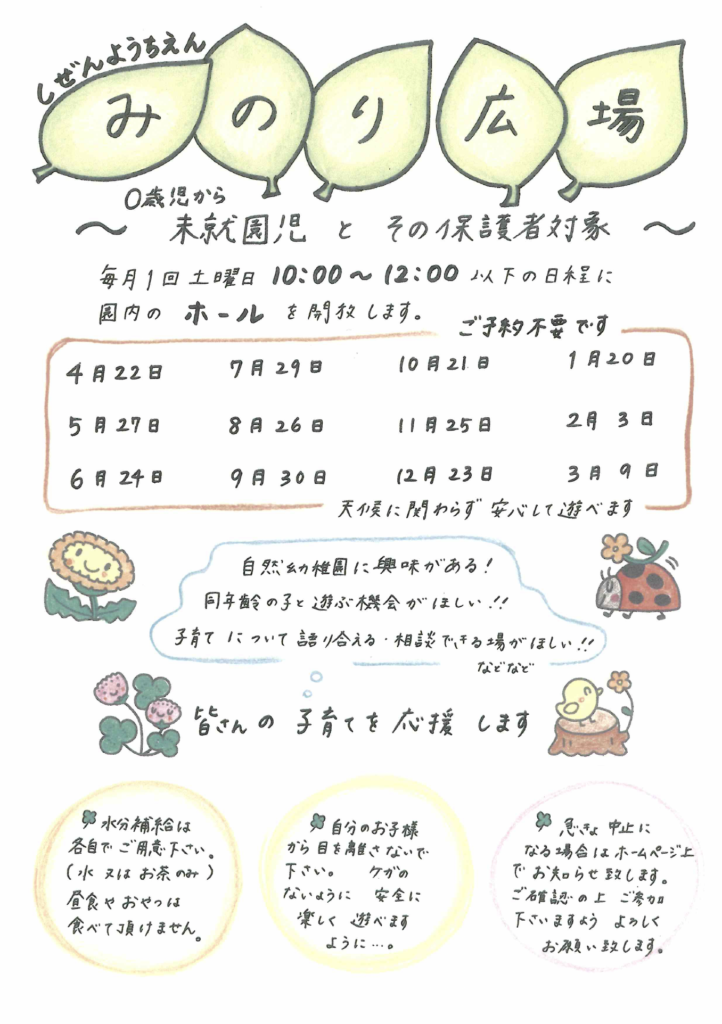 しぜんようちえん
みのり広場
0歳児から
〜 未就園児 と その保護者対象 〜
毎月1回 土曜日 10:00〜12:00 以下の日程に
園内の ホール を開放します。
ご予約不要です
4月22日 7月29日 10月21日 1月20日
5月27日 8月26日 11月25日 2月3日
6月24日 9月30日 12月23日 3月9日
天候に関わらず 安心して遊べます
自然幼稚園に興味がある!
同年齢の子と遊ぶ機会がほしい!!
子育てについて語り合える・相談できる場がほしい!!
などなど
皆さんの 子育てを応援 します
水分補給は
各自でご用意下さい。
(水 又は お茶のみ)
昼食や おやつは
食べて頂けません。
自分のお子様
から目を離さないで
下さい。 ケガの
ないように 安全に
楽しく 遊べます
ように…。
急きょ 中止に
なる場合はホームページ上
でお知らせ致します。
ご確認の上 ご参加
下さいますよう よろしく
お願い致します。